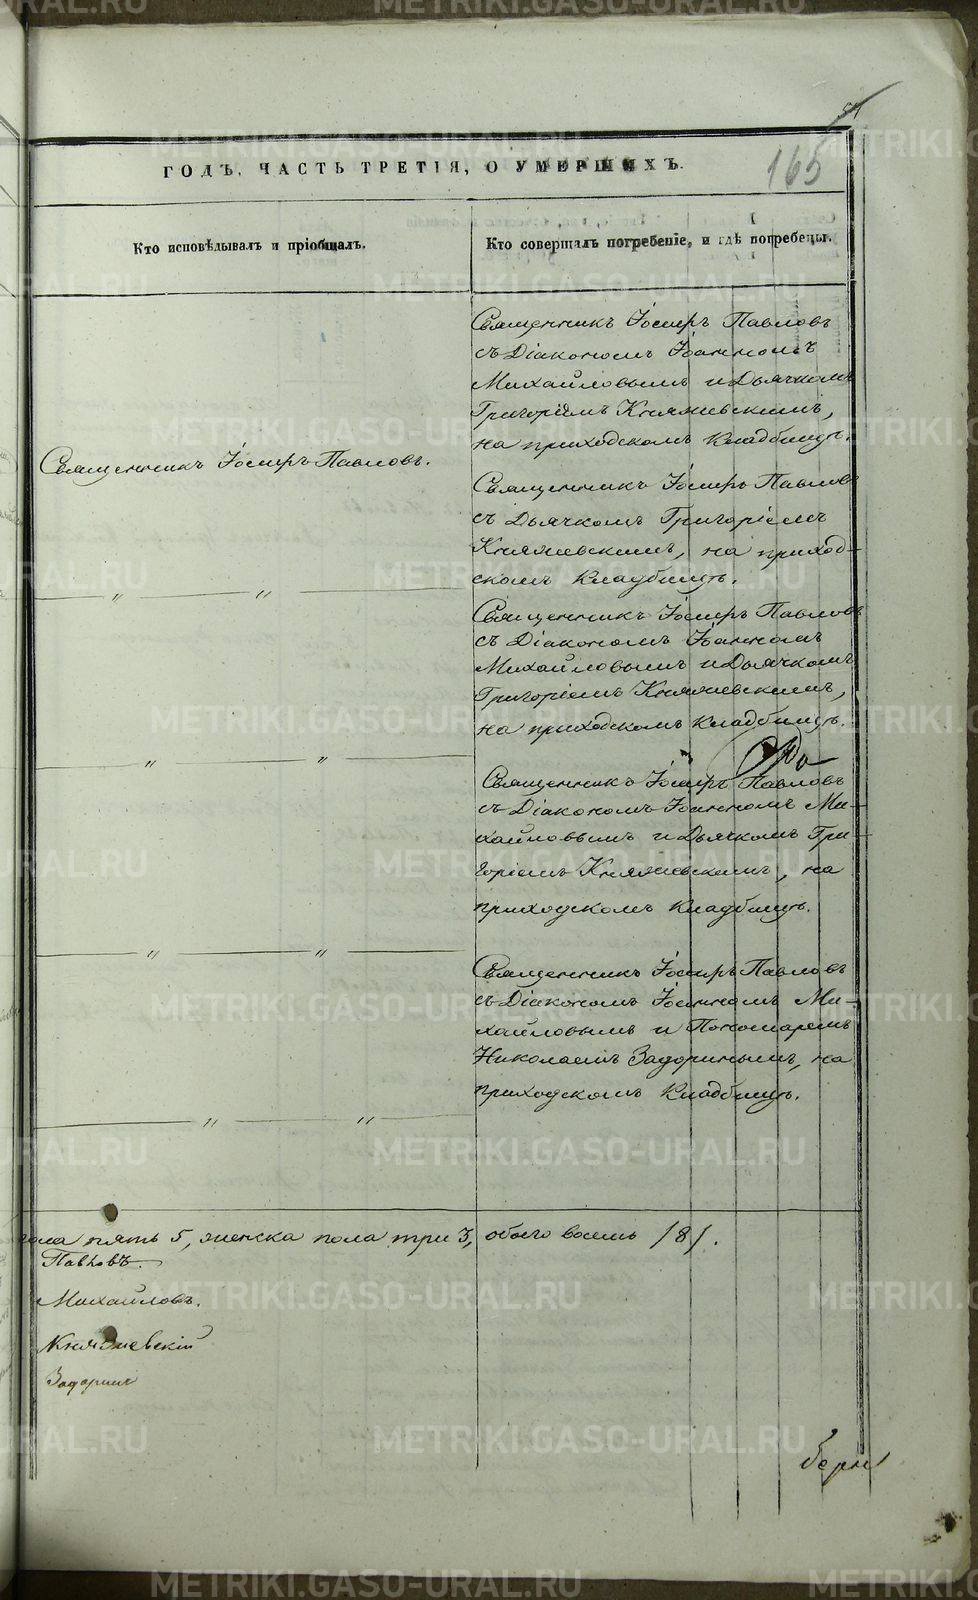 165
ГОДЪ, ЧАСТЬ ТРЕТІЯ, О УМЕРШИХЪ.
Кто исповѣдывалъ и пріобщалъ.
Кто совершалъ погребеніе, и гдѣ погребены.
Священникъ Іосифъ Павловъ
съ Діакономъ Іоанномъ
Михайловымъ и Дьячкомъ
Григоріемъ Княжевскимъ,
на приходскомъ Кладбищѣ.
Священникъ Іосифъ Павловъ.
Священникъ Іосифъ Павловъ
съ Дьячкомъ Григоріемъ
Княжевскимъ, на приход-
скомъ Кладбищѣ.
〃 〃
Священникъ Іосифъ Павловъ
съ Діакономъ Іоанномъ
Михайловымъ и Дьячкомъ
Григоріемъ Княжевскимъ,
на приходскомъ Кладбищѣ.
〃 〃
Священникъ Іосифъ Павловъ
съ Діакономъ Іоанномъ Ми-
хайловымъ и Дьячкомъ Гри-
горіемъ Княжевскимъ, на
приходскомъ Кладбищѣ.
〃 〃
Священникъ Іосифъ Павловъ
съ Діакономъ Іоанномъ Ми-
хайловымъ и Пономаремъ
Николаемъ Задоринымъ, на
приходскомъ Кладбищѣ.
〃 〃
пола пять 5, женска пола три 3, обоего восемь /8/.
Павловъ.
Михайловъ.
Княжевскій
Задоринъ
METRIKI.GASO-URAL.RU